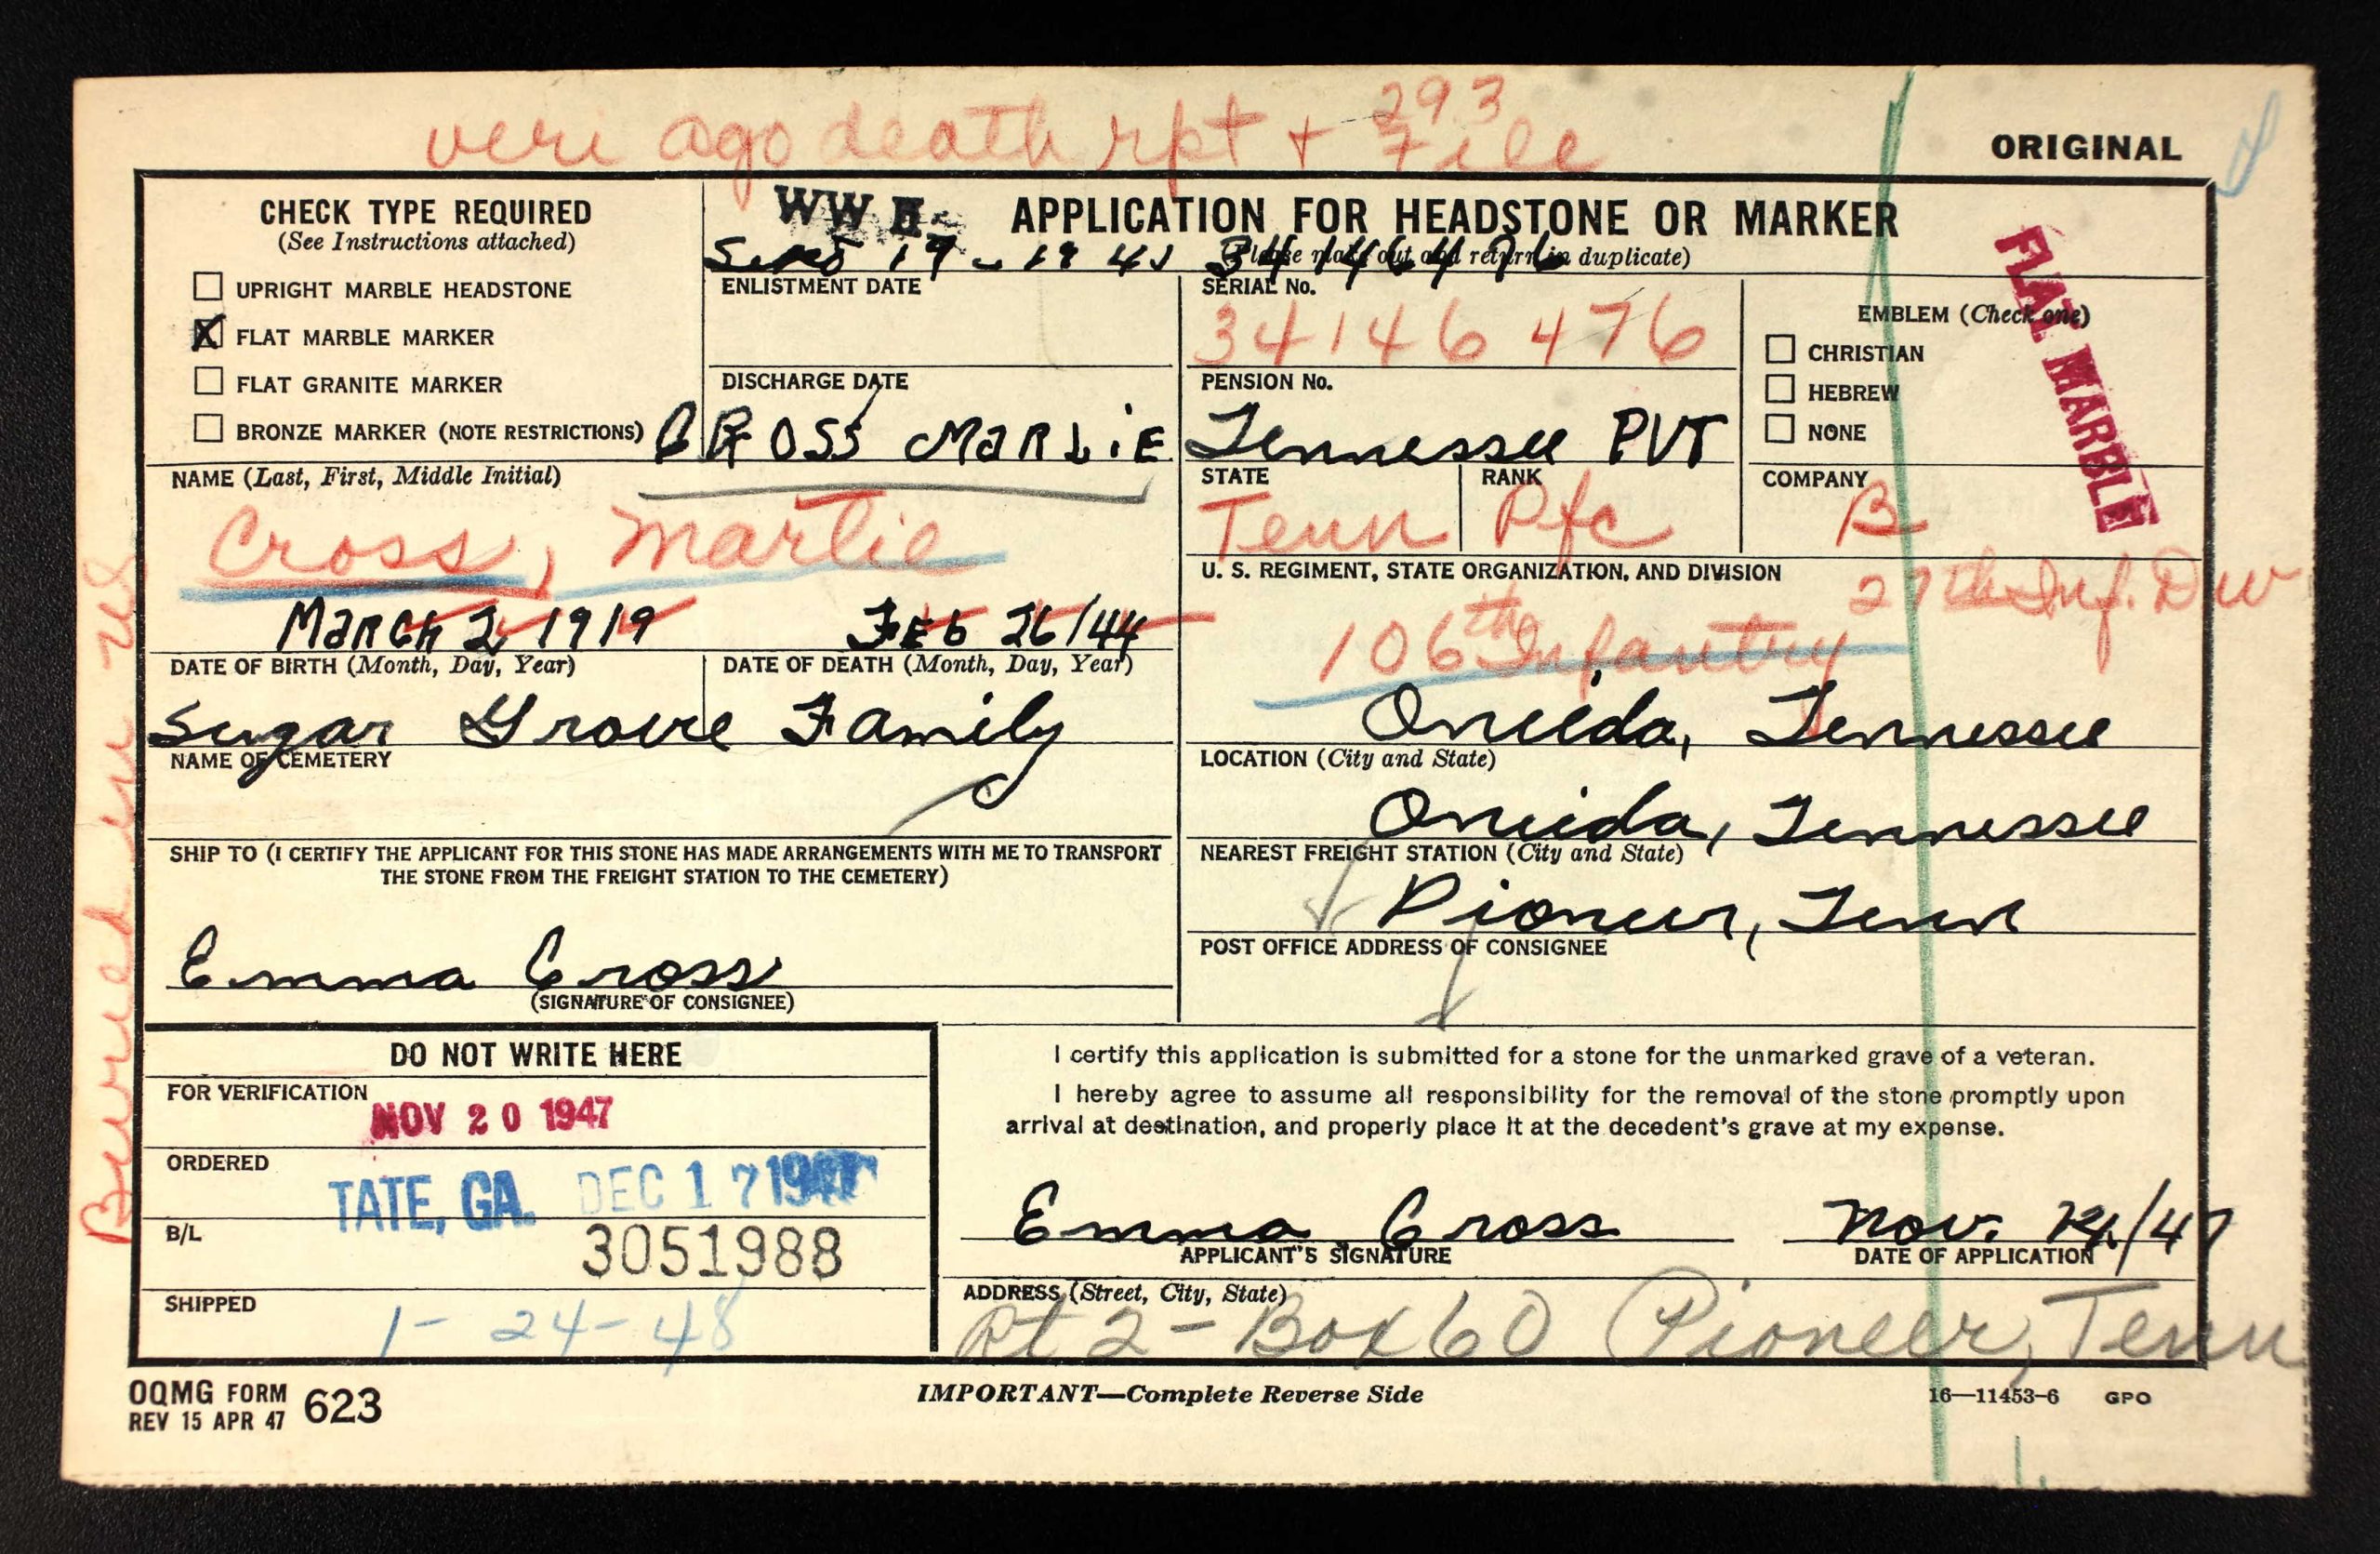 veri ago death rpt + 293 File
ORIGINAL
CHECK TYPE REQUIRED
(See Instructions attached)
UPRIGHT MARBLE HEADSTONE
X FLAT MARBLE MARKER
FLAT GRANITE MARKER
BRONZE MARKER (NOTE RESTRICTIONS)
WW II
APPLICATION FOR HEADSTONE OR MARKER
(Please make out and return in duplicate)
19 - 19 41
ENLISTMENT DATE
34146476
SERIAL No.
34146476
DISCHARGE DATE
PENSION No.
EMBLEM (Check one)
CHRISTIAN
HEBREW
NONE
FLAT MARBLE
CROSS MARLIE
NAME (Last, First, Middle Initial)
Cross, Marlie
Tennessee PVT
STATE
RANK
COMPANY
Tenn
Pfc
B
U. S. REGIMENT, STATE ORGANIZATION, AND DIVISION
27th Inf. Div
106th Infantry
MARCH 2 1919
FEb 26/44
DATE OF BIRTH (Month, Day, Year)
DATE OF DEATH (Month, Day, Year)
Sugar Grove Family
NAME OF CEMETERY
Oneida, Tennessee
LOCATION (City and State)
Oneida, Tennessee
NEAREST FREIGHT STATION (City and State)
SHIP TO (I CERTIFY THE APPLICANT FOR THIS STONE HAS MADE ARRANGEMENTS WITH ME TO TRANSPORT
THE STONE FROM THE FREIGHT STATION TO THE CEMETERY)
Pioneer, Tenn
POST OFFICE ADDRESS OF CONSIGNEE
Emma Cross
(SIGNATURE OF CONSIGNEE)
Buried in US
DO NOT WRITE HERE
FOR VERIFICATION
NOV 20 1947
ORDERED
TATE, GA. DEC 17 1947
B/L
3051988
SHIPPED
1-24-48
I certify this application is submitted for a stone for the unmarked grave of a veteran.
I hereby agree to assume all responsibility for the removal of the stone promptly upon
arrival at destination, and properly place it at the decedent's grave at my expense.
Emma Cross
APPLICANT'S SIGNATURE
Nov. /47
DATE OF APPLICATION
ADDRESS (Street, City, State)
Rt 2 - Box 60 Pioneer, Tenn
OQMG FORM 623
REV 15 APR 47
IMPORTANT—Complete Reverse Side
16—11453-6 GPO